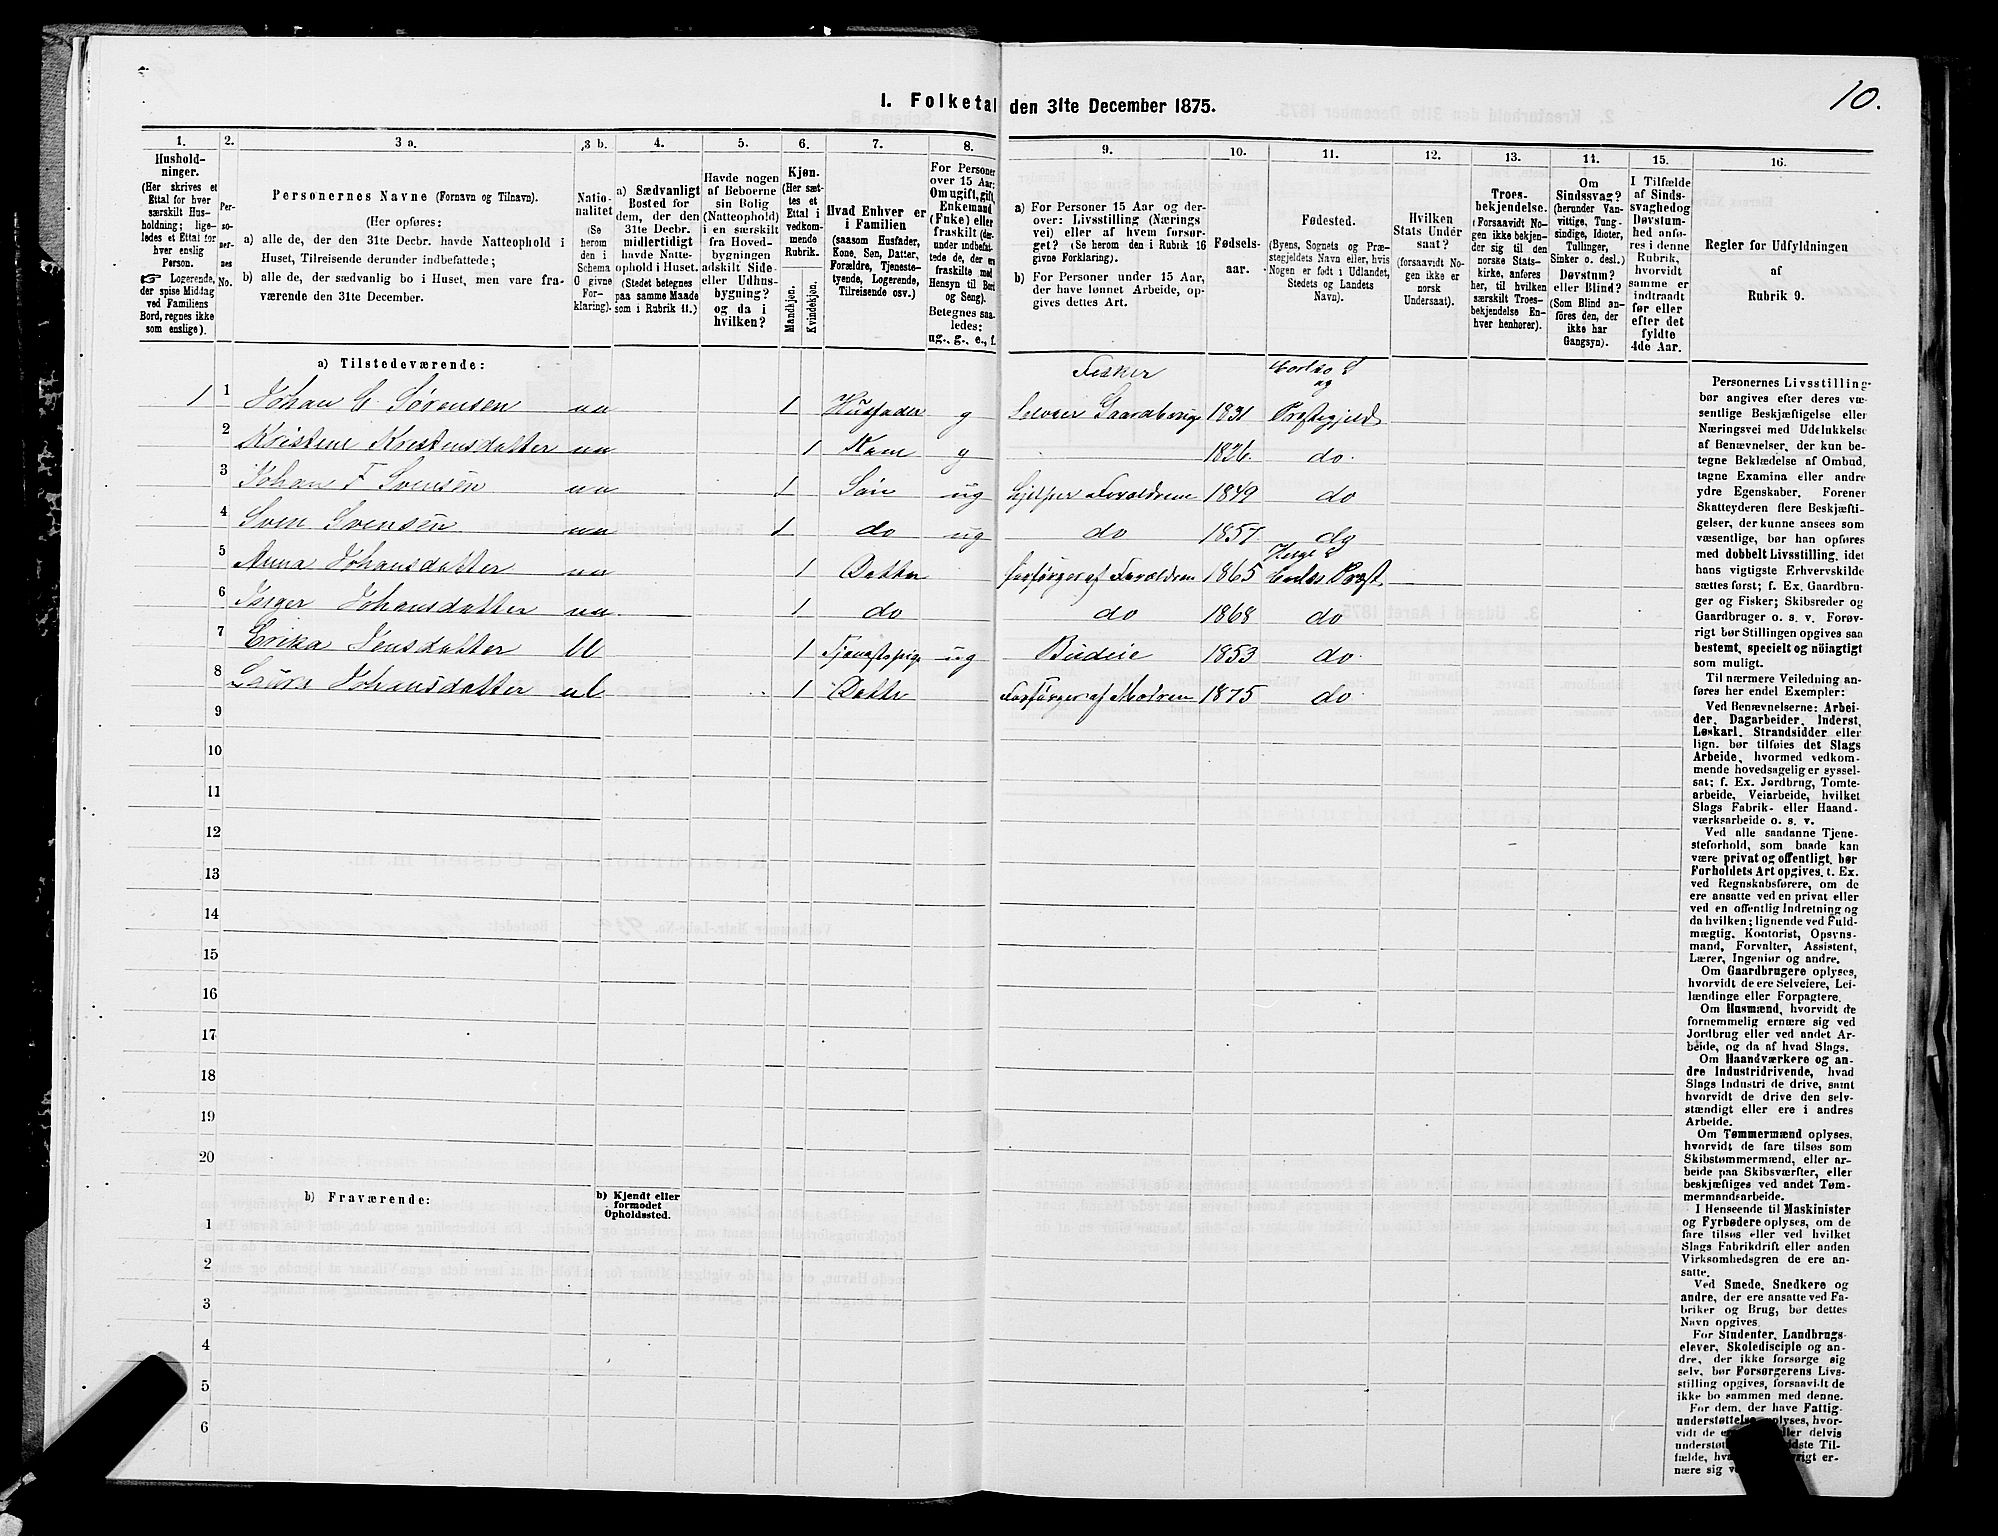 10.
I. Folketal den 31te December 1875.
1.
Hushold-
ninger.
(Her skrives et
Ettal for hver
særskilt Hus-
holdning; lige-
ledes et Ettal for
hver enslig
Person.
☞ Logerende,
der spise Middag
ved Familiens
Bord, regnes ikke
som enslige).
2.
Per-
so-
ner-
nes
No.
3 a.
Personernes Navne (Fornavn og Tilnavn).
(Her opføres:
a) alle de, der den 31te Decbr. havde Natteophold i
Huset, Tilreisende derunder indbefattede;
b) alle de, der sædvanlig bo i Huset, men vare fra-
værende den 31te December.
3 b.
Natio-
nalitet
(Se
herom
den i
Schema
O givne
For-
klaring).
4.
a) Sædvanligt
Bosted for
dem, der den
31te Decbr.
midlertidigt
havde Natte-
ophold i Huset.
(Stedet betegnes
paa samme Maade
som i Rubrik 11.)
5.
Havde nogen
af Beboerne
sin Bolig
(Natteophold)
i en særskilt
fra Hoved-
bygningen
adskilt Side-
eller Udhus-
bygning?
og da i
hvilken?
6.
Kjøn.
(Her sæt-
tes et
Ettal i
vedkom-
mende
Rubrik.
Mandkjøn.
Kvindekjøn.
7.
Hvad Enhver er
i Familien
(saasom Husfader,
Kone, Søn, Datter,
Forældre, Tjeneste-
tyende, Logerende,
Tilreisende osv.)
8.
For Personer
over 15 Aar:
Om ugift, gift,
Enkemand
(Enke) eller
fraskilt (der-
under indbefat-
tede de, der ere
fraskilte med
Hensyn til Bord
og Seng).
Betegnes saa-
ledes:
ug., g., e., f.
9.
a) For Personer 15 Aar og der-
over: Livsstilling (Nærings
vei) eller af hvem forsør-
get? (Se herom den i Rubrik 16
givne Forklaring).
b) For Personer under 15 Aar,
der have lønnet Arbeide, op-
gives dettes Art.
10.
Fødsels-
aar.
11.
Fødested.
(Byens, Sognets og Præ-
stegjeldets Navn eller, hvis
Nogen er født i Udlandet,
Stedets og Landets
Navn).
12.
Hvilken
Stats Under
saat?
(forsaavidt No-
gen ikke er
norsk
Undersaat).
13.
Troes-
bekjendelse.
(Forsaavidt No-
gen ikke bekjen-
der sig til den
norske Stats-
kirke, anføres
her, til hvilken
særskilt Troes-
bekjendelse En-
hver henhører).
14.
Om
Sindssvag?
(herunder Van-
vittige, Tung-
sindige, Idioter,
Tullinger,
Sinker o. desl.)
Døvstum?
eller Blind?
(Som Blind an-
føres den, der
ikke har
Gangsyn).
15.
I Tilfælde
af Sinds-
svaghed og
Døvstum-
hed anfø-
res i denne
Rubrik,
hvorvidt
samme er
indtraadt
før eller
efter det
fyldte
4de Aar.
16.
Regler for Udfyldningen
af
Rubrik 9.
a) Tilstedeværende:
Fisker
og
1 1 Johan C Sørensen 1 Husfader g Selveier Gaardbruger 1831 Præstegjeld
2 Kristene Kristensdatter 1 Kone g 1826. do.
3 Johan F Svensen 1 Søn ug Hjelper Foraldrene 1849 do
4 Sven Svensen 1 do ug do 1857 do
5 Anna Johansdatter 1 Datter forsørges af Foraldrene 1865 Præst.
6 Johansdatter 1 do do 1868 do
7 Erika Jensdatter 1 ug Budeie 1853 do
8 Laura Johansdatter 1 Datter Forsørges af Modren 1875 do
9
10
11
12
13
14
15
16
17
18
19
20
b) Fraværende:
b) Kjendt eller
formodet
Opholdssted.
1
2
3
4
5
6
Personernes Livsstilling
bør angives efter deres væ-
sentlige Beskjæftigelse eller
Næringsvei med Udelukkelse
af Benævnelser, der kun be-
tegne Beklædelse af Ombud,
tagne Examina eller andre
ydre Egenskaber. Forener
Skatteyderen flere Beskjæfti-
gelser, der kunne ansees som
væsentlige, bør han opføres
med dobbelt Livsstilling, idet
hans vigtigste Erhvervskilde
sættes først; f. Ex. Gaardbru-
ger og Fisker; Skibsreder og
Gaardbruger o. s. v. Forøv-
rigt bør Stillingen opgives saa
bestemt, specielt og nöiagtigt
som muligt.
Til nærmere Veiledning an-
føres her endel Exempler:
Ved Benævnelserne: Arbei-
der, Dagarbeider, Inderst,
Løskarl, Strandsidder eller
lign. bør tilføies det Slags
Arbeide, hvormed vedkom-
mende hovedsagelig er syssel-
sat; f. Ex. Jordbrug, Tomte-
arbeide, Veiarbeide, hvilket
Slags Fabrik- eller Haand-
værksarbeide o. s. v.
Ved alle saadanne Tjene-
steforhold, som baade kan
være privat og offentligt, bør
Forholdets Art opgives, t. Ex.
ved Regnskabsførere, om de
ere ansatte ved en privat eller
ved en offentlig Indretning og
da hvilken; lignende ved Fuld-
mægtig, Kontorist, Opsyns-
mand, Forvalter, Assistent,
Lærer, Ingeniør og andre.
Om Gaardbrugere oplyses,
hvorvidt de ere Selveiere, Lei-
lændinge eller Forpagtere.
Om Husmænd, hvorvidt de
fornemmelig ernære sig ved
Jordbrug eller ved andet Ar-
beide, og da af hvad Slags.
Om Haandværkere og an-
dre Industridrivende, hvad
Slags Industri de drive, samt
hvorvidt de drive den selv-
stændigt eller ere i andres
Arbeide.
Om Tømmermænd oplyses,
hvorvidt de fare tilsøs som
Skibstømmermænd, eller ar-
beide paa Skibsværfter, eller
beskjæftiges ved andet Tøm-
mermandarbeide.
I Henseende til Maskinister
og Fyrbødere oplyses, om de
fare tilsøs eller ved hvilket
Slags Fabrikdrift eller anden
Virksomhedsgren de ere an-
satte.
Ved Smede, Snedkere og
andre, der ere ansatte ved Fa-
briker og Brug, bør dettes
Navn opgives.
For Studenter, Landbrugs-
elever, Skoledisciple og an-
dre, der ikke forsørge sig
selv, bør Forsørgerens Livs-
stilling opgives, forsaavidt de
ikke bo sammen med denne.
For dem, der have Fattig-
understøttelse oplyses, hvor-